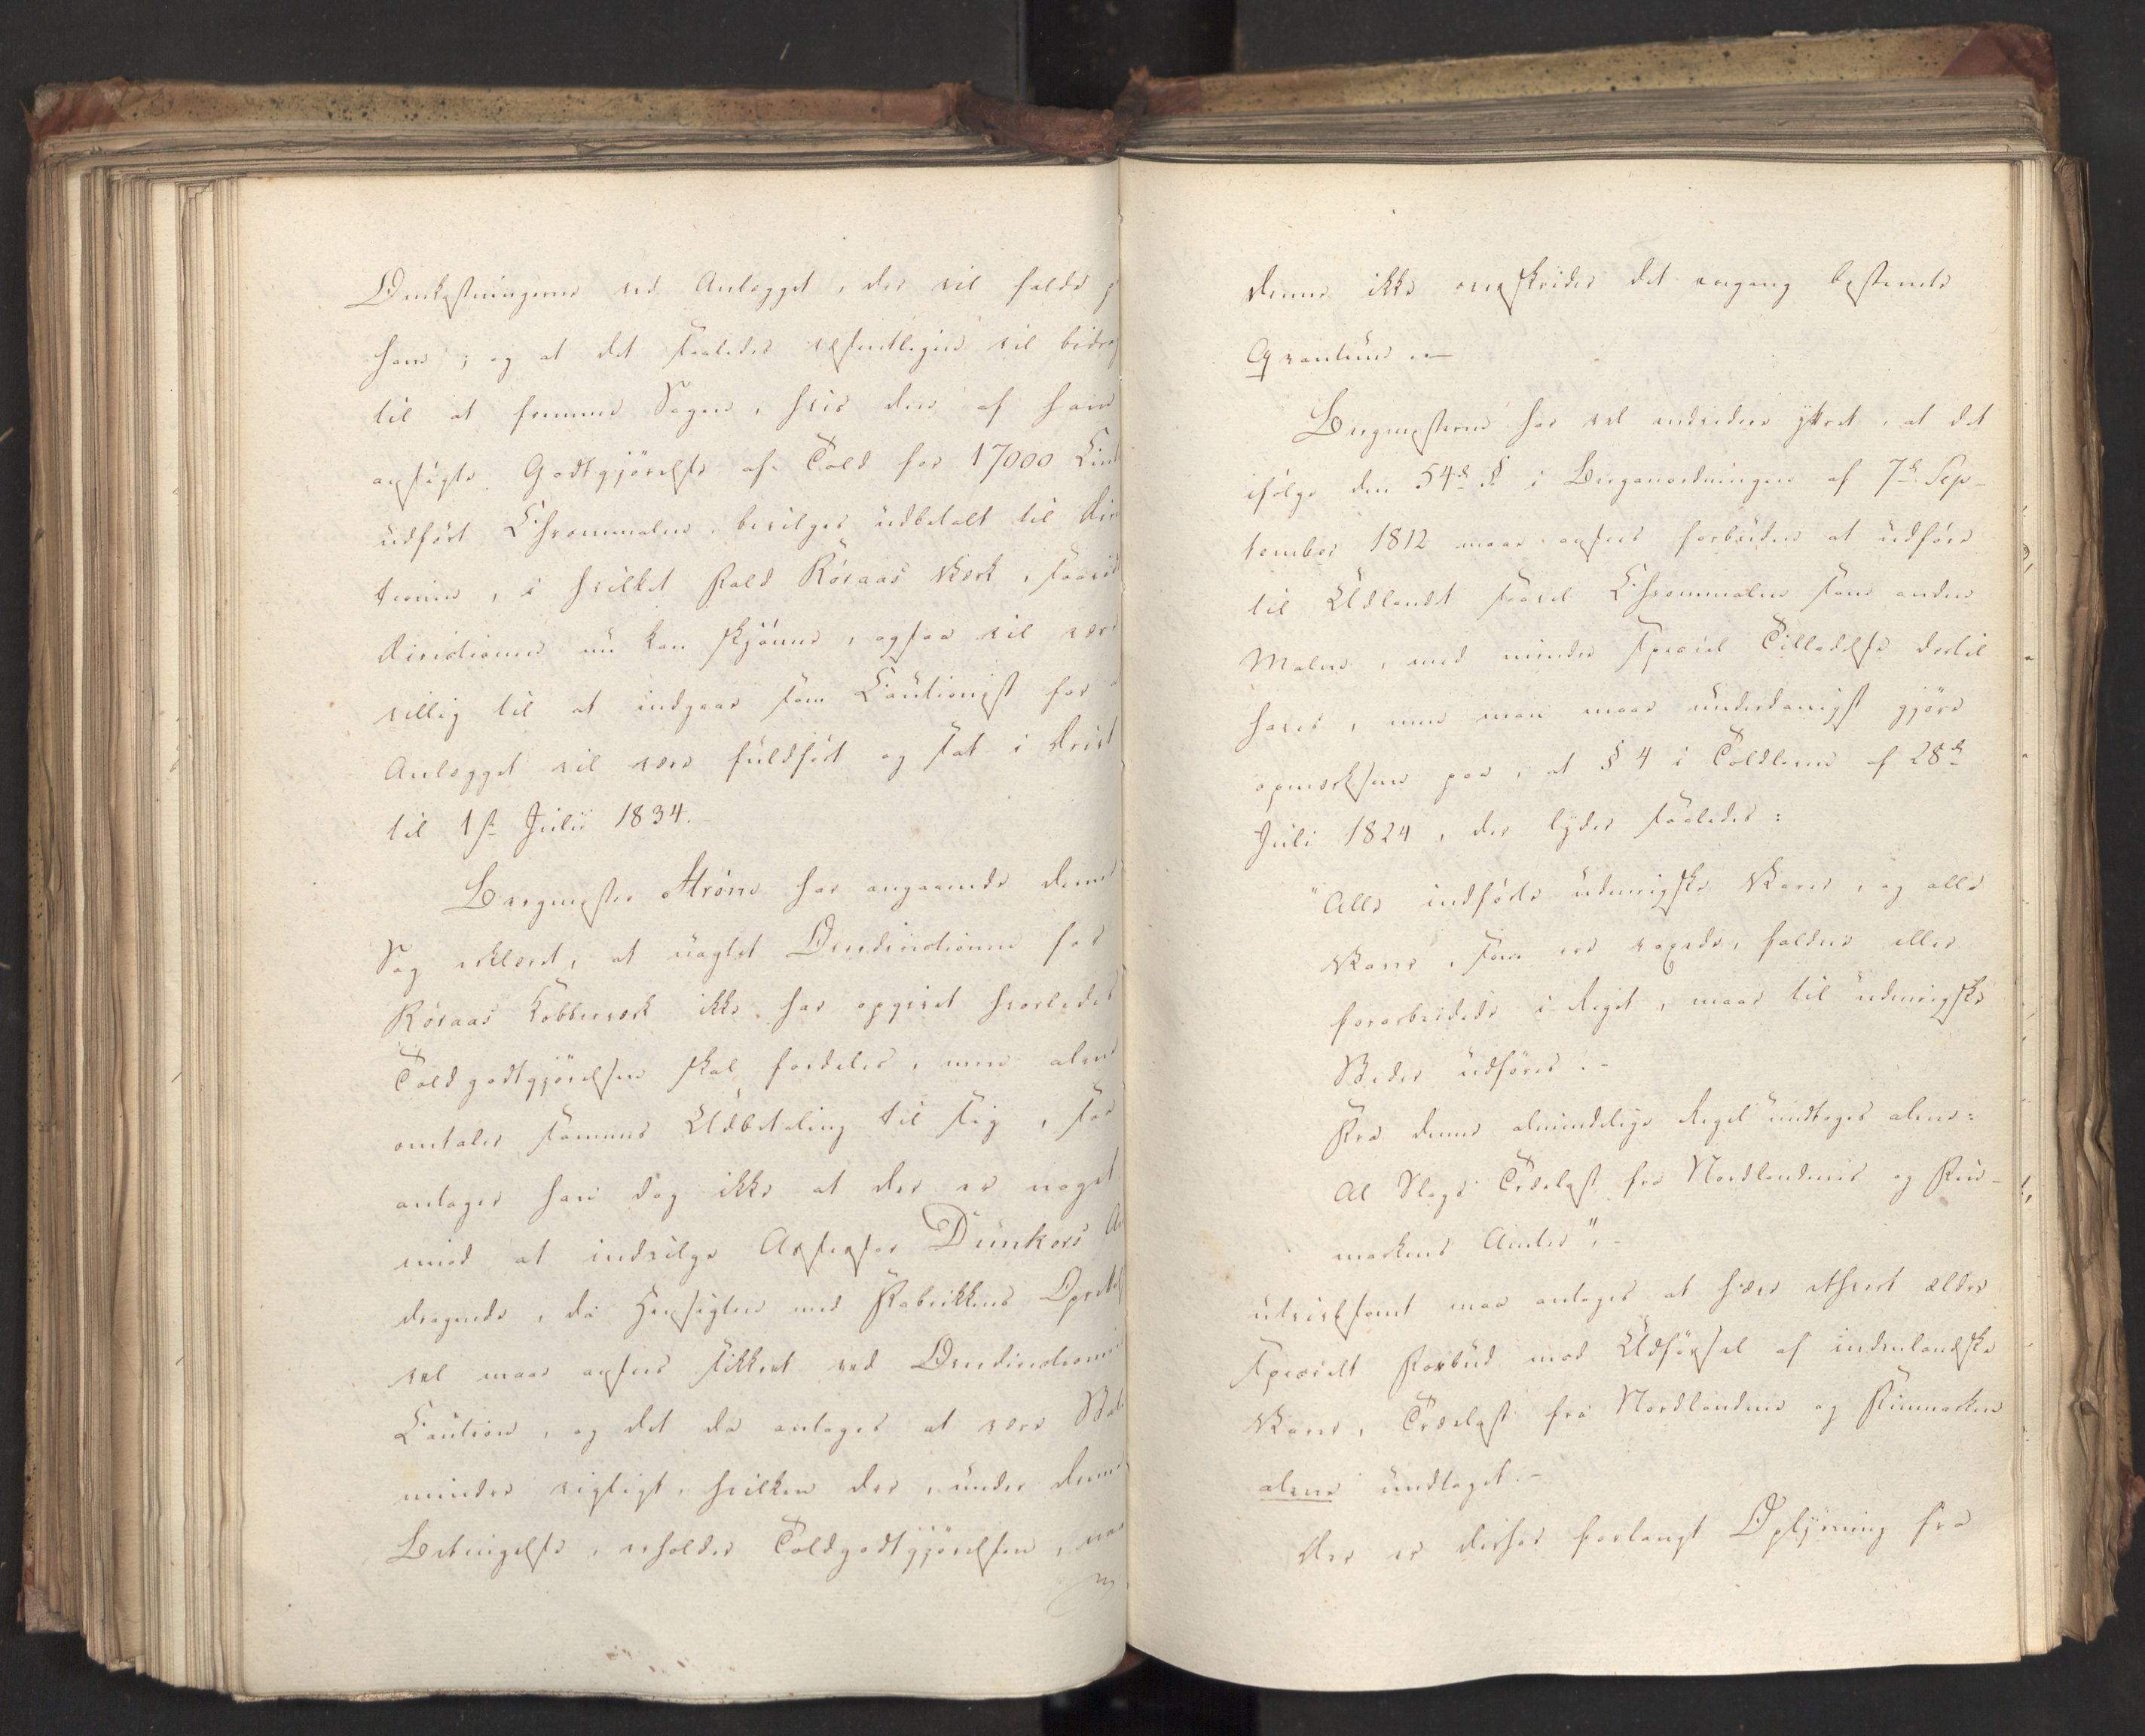 Omkostningerne ved Anlægget, der vil falde
ham; og at det saaledes væsentligen vil bidrag
til at fremme Sagen, hvis den af ham
ansøgte Godtgjörelse af Told for 17000 Cent
udført Chrommalm, bevilges udbetalt til Direc
tionen, i hvilket Fald Röraas Værk, saavidt
Directionen nu kan skjönne, ogsaa vil være
villig til at indgaae som Cautionist for
Anlægget vil være fuldført og sat i Drift
til 1ste Julii 1834.
Bergmester Ström har angaaende denne
Sag erklæret, at uagtet Overdirectionen for
Röraas Kobberværk ikke har opgivet hvorledes
Toldgodtgjörelsen skal fordeles, men alene
omtaler sammes Udbetaling til sig, saa
antager han dog ikke at der er noget
imod at indvilge Assessor Dunkers An
dragende, da Hensigten med Fabrikkens Oprettelse
vel maae ansees sikkret ved Overdirectionens
Caution, og det da antages at være Staten
mindre vigtigt, hvilken der, under denne
Betingelse, erholder Toldgodtgjörelsen, naar
denne ikke overskrider det engang bestemte
Qvantum.—
Bergmesteren har vel endvidere yttret, at det
ifölge den 54de § i Berganordningen af 7de Sep-
tember 1812 maae ansees forbuden at udföre
til Udlandet saavel Chrommalm som anden
Malm, med mindre speciel Tilladelse dertil
haves, men man maae underdanigst gjöre
opmærksom paa, at § 4 i Toldloven af 28de
Juli 1824, der lyder saaledes:
"Alle indförte udenrigske Varer, og alle
Varer, som ere voxede, faldne eller
forarbeidede i Riget, maae til udenrigske
Steder udföres.-
Fra denne almindelige Regel undtages alene:
Al Slags Trælast fra Nordlandenes og Fin-
markens Amter",-
utvivlsomt maa antages at hæve ethvert ældre
specielt Forbud mod Udförsel af indenlandske
Varer, Trælast fra Nordlandene og Finmarken
alene undtaget.-
Der er derhos forlangt Oplysning fra